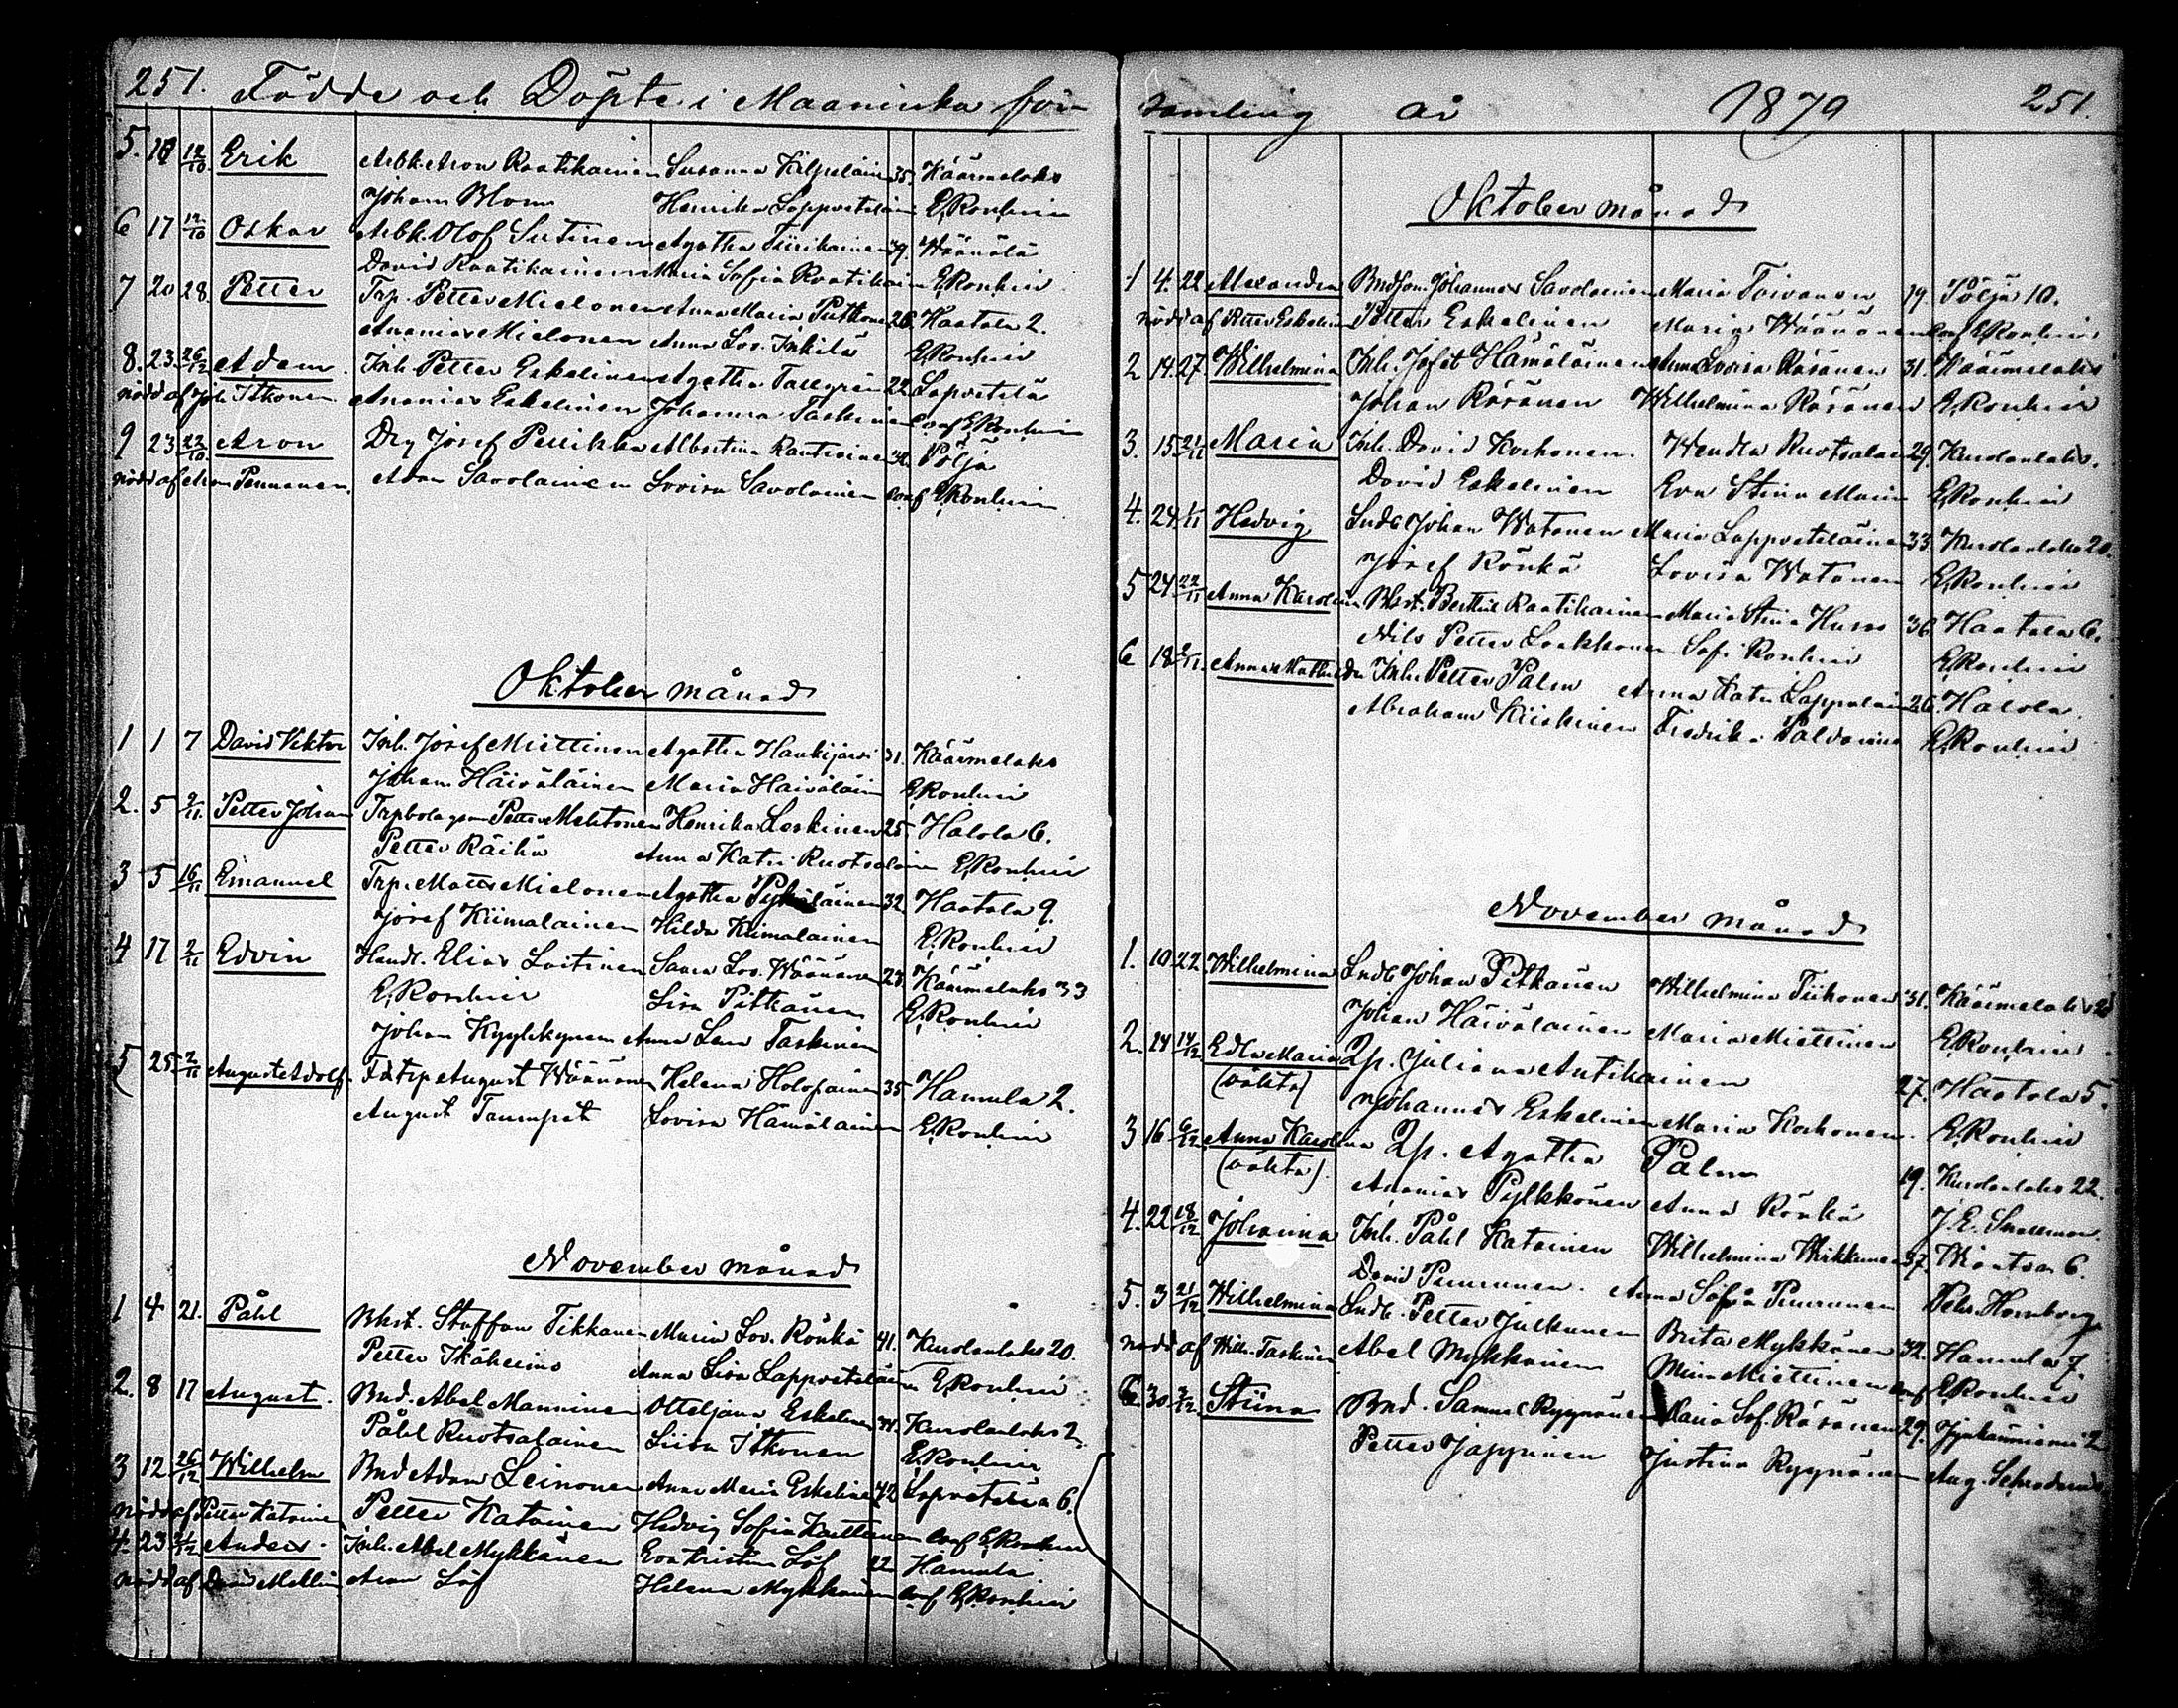 251. Födde och Döpte i Maaninka för-
5. 10 12/10 Erik Arbk. Aron Raatikainen Susanna Kilpeläin 35. Käärmelaks
Johan Blom Henrika Lappveteläi E. Ronhier
6 17 19/10 Oskar Arbk. Olof Sutinen Agatha Tiirikainen 39. Wäänälä
David Raatikainen Maria Sofia Raatikai E. Ronhier
7 20 28 Petter Trp. Petter Mielonen Anna Maria Putkonen 26. Haatala 2.
Ananias Mielonen Anna Lov. Inkilä E. Ronhier
8. 23. 26/12 Adam. Inh. Petter Eskelinen Agatha Tallgren 22 Lapvetelä
nödd af Joh. Itkonen. Ananias Eskelinen Johanna Taskinen conf E. Ronhier
9 23 22/10 Aron Drg Josef Pasikka Albertina Rautiainen 34. Pöljä
nödd af Aron Pennanen. Adam Savolainen Lovisa Savolainen conf E. Ronhier
Oktober månad
1 1 7 David Viktor Inh. Josef Miettinen Agatha Haukijärvi 31. Käärmelaks
Johan Häiväläinen Maria Haiväläin E. Ronhier
2. 5 9/11 Petter Johan Trpbolagsm Petter Mehtonen Henrika Leskinen 25. Halola 6.
Petter Räihä Anna Katr. Ruotsalain E. Ronhier
3 5 16/11 Emanuel Trp. Matts Mielonen Agatha Pykäläinen 32. Haatala 9.
Josef Kiimalainen Hilda Kiimalainen E. Ronhier
4 17 2/11 Edvin Handl. Elias Laitinen Sanna Lov. Wäänänen 23. Käärmelaks 33
E. Ronhier Lisa Pitkänen E. Ronhier
Johan Kyyhkynen Anna Lena Taskinen
5 25 2/11 August Adolf. Fd trp August Wäänänen Helena Holopainen 35. Hamula 2.
August Taumpät Lovisa Hämäläinen E. Ronhier
November månad
1 4 21. Påhl Bkst. Staffan Tikkanen Maria Lov. Rönkä 41. Kurolanlaks 20.
Petter Ikäheimo Anna Lisa Lappveteläin E. Ronhier
2. 8 17 August. Bnd. Abel Manninen Otteljana Eskelinen 34. Kurolanlaks 2.
Påhl Ruotsalainen Liisa Itkonen E. Ronhier
3 12 26/12 Wilhelm Bnd Adam Leinonen Anna Maria Eskelinen 42 Lapvetelä 6.
nödd af Petter Katainen Petter Katainen Hedvig Sofia Karttunen conf E. Ronhier
4. 23 21/12 Anders. Inh. Abel Mykkänen Eva Kristina Löf 22 Hamula
nödd af David Mellin Aron Löf Helena Mykkänen conf E. Ronhier
samling år 1879 251.
Oktober månad
1 4. 22 Alexandra Bndson Johannes Savolainen Maria Toivanen 19. Pöljä 10.
nödd af Petter Eskelinen Petter Eskelinen Maria Wäänänen conf E. Ronhier
2 14. 27. Wilhelmina Inh. Jafet Hämäläinen Anna Lovisa Räsänen 31. Käärmelaks
Johan Räsänen Wilhelmina Räsänen E. Ronhier
3. 15 21/11 Maria Inh. David Korhonen. Wendla Ruotsalain 29. Kurolanlaks.
David Eskelinen Eva Stina Marin E. Ronhier
4. 24 1/11 Hedvig Lndb Johan Watanen Maria Lappveteläinen 33. Kurolanlaks 20.
Josef Rönkä Lovisa Watanen E. Ronhier
5 24 22/11 Anna Karolina Bkst. Berthil Raatikainen Maria Stina Huss 36. Haatala 6.
Nils Petter Laakkonen Sofi Ronhier E. Ronhier
6 18 9/11. Anna Mathilda Inh. Petter Palm Anna Katr. Lappalain 26. Halola
Abraham Kiiskinen Fredrika Paldanius E. Ronhier
November månad
1. 10 22. Wilhelmina Lndb Johan Pitkänen Wilhelmina Tiihonen 31. Käärmelaks 20
Johan Häiväläinen Maria Miettinen E. Ronhier
2. 14 14/12 Edla Maria Qp. Juliana Antikainen 27. Haatala 5.
(oäkta) Johannes Eskelinen Maria Korhonen. E. Ronhier
3 16 6/12 Anna Karolina Qp. Agatha Palm 19. Kurolanlaks 22.
(oäkta). Ananias Pylkkönen Anna Rönkä J. E. Snellman.
4. 22 18/12 Johanna Inh. Påhl Katainen Wilhelmina Wirkkunen 37. Wiantsa 6.
David Puurunen. Anna Sofia Puurunen Petr. Hornborg
5. 3 21/12 Wilhelmina Lndb. Petter Julkunen Brita Mykkänen 32. Hamula 7.
nödd af Wilh. Taskinen Abel Mykkänen Mina Miettinen conf E. Ronhier
6. 30 2/12. Stiina Bnd. Samuel Ryynänen Maria Sof. Räsänen 29. Jynkänniemi 2
Petter Jäppinen Justina Ryynänen Aug. Schroderus